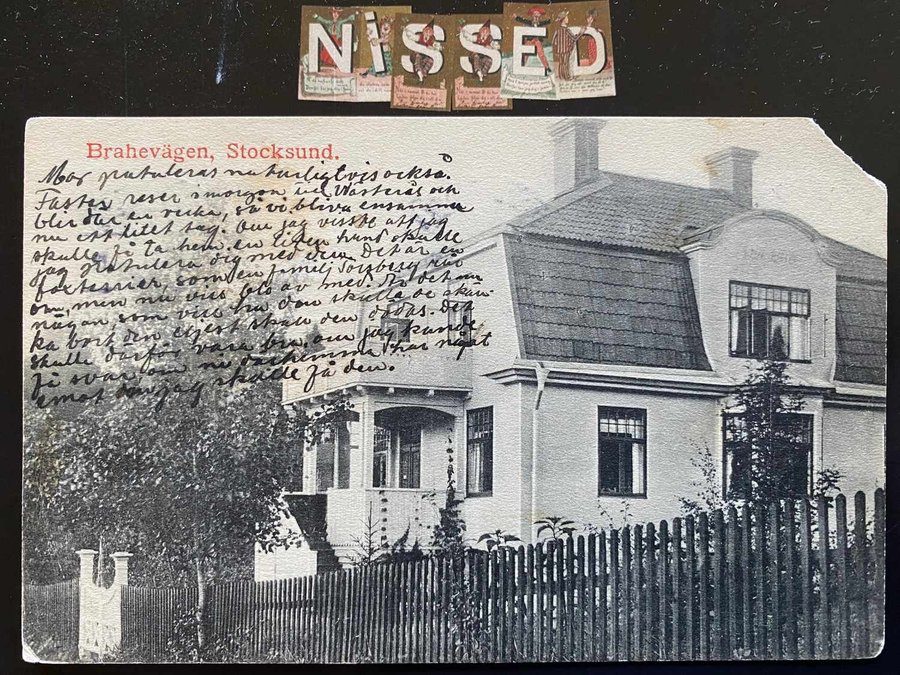 NISSED
Brahevägen, Stocksund.
Mor gratuleras naturligtvis också.
Faster reser i morgon till Västerås och
blir där en vecka, så vi bliva ensamma
nu ett litet tag. Om jag visste att jag
skulle få ta hem en liten hund skulle
jag gratulera dig med den. Det är en
foxterrier, som en familj rår
om, men nu vill bli av med. Är det
någon som vill ha den skulle de skän-
ka bort den eljest skall den dödas. Det
skulle därför vara bra om jag kunde
få svar om ni därhemma har något
emot om jag skulle få den.